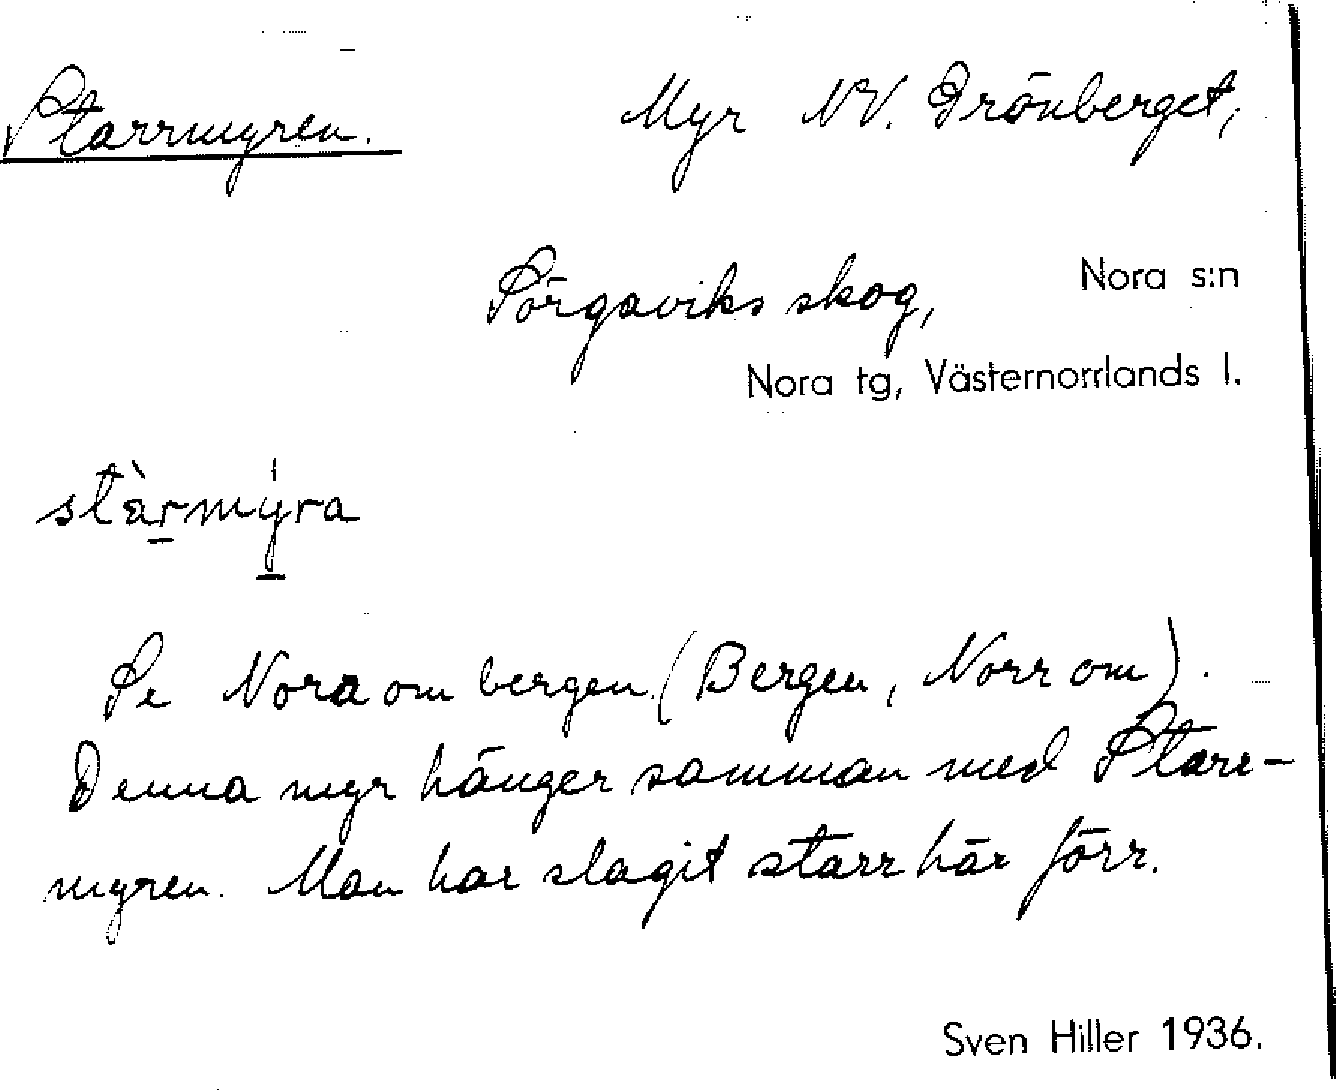 Starrmyren. Myr NV. Grönberget,
Sörgaviks skog, Nora s:n
Nora tg, Västernorrlands l.
stàrmyra
Se Nora om bergen (Bergen, Norr om).
Denna myr hänger samman med Starr-
myren. Man har slagit starr här förr.
Sven Hiller 1936.